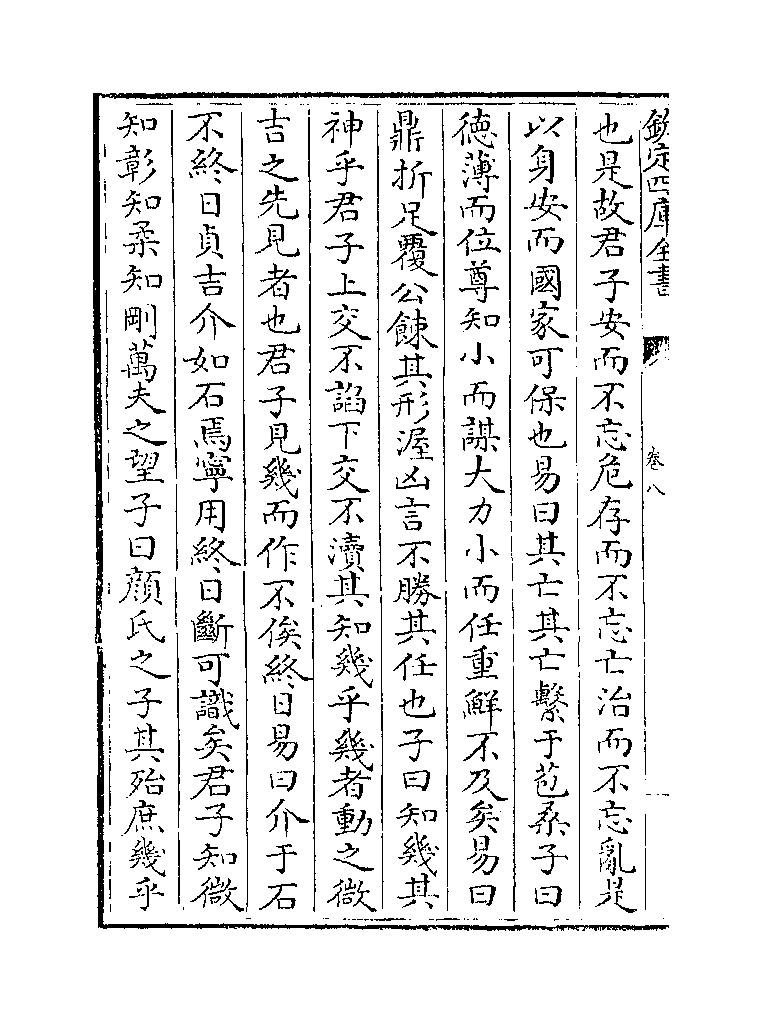 欽定四庫全書
卷八
也是故君子安而不忘危存而不忘亡治而不忘亂是
以身安而國家可保也易曰其亡其亡繫于苞桑子曰
德薄而位尊知小而謀大力小而任重鮮不及矣易曰
鼎折足覆公餗其形渥凶言不勝其任也子曰知幾其
神乎君子上交不謟下交不瀆其知幾乎幾者動之微
吉之先見者也君子見幾而作不俟終日易曰介于石
不終日貞吉介如石焉寧用終日斷可識矣君子知微
知彰知柔知剛萬夫之望子曰顔氏之子其殆庶幾乎